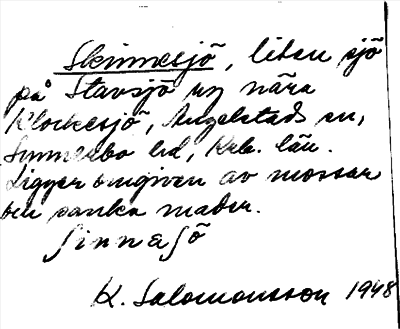 Skinnesjö, liten sjö
på Stavsjö ug nära
Klockesjö, Angelstads sn,
Sunnerbo hd, Krb. län.
Ligger omgiven av mossar
och sanka mader.
ʃinnəʃö
K. Salomonsson 1948